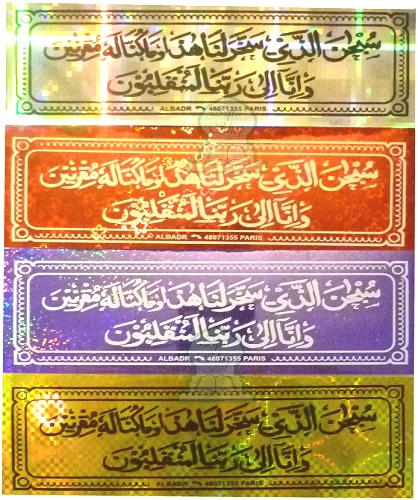 سبحن الذي سخر لنا هذا وما كنا له مقرنين
وانا الى ربنا لمنقلبون
ALBADR 48071355 PARIS
سبحن الذي سخر لنا هذا وما كنا له مقرنين
وانا الى ربنا لمنقلبون
ALBADR 48071355 PARIS
سبحن الذي سخر لنا هذا وما كنا له مقرنين
وانا الى ربنا لمنقلبون
ALBADR 48071355 PARIS
سبحن الذي سخر لنا هذا وما كنا له مقرنين
وانا الى ربنا لمنقلبون
ALBADR 48071355 PARIS